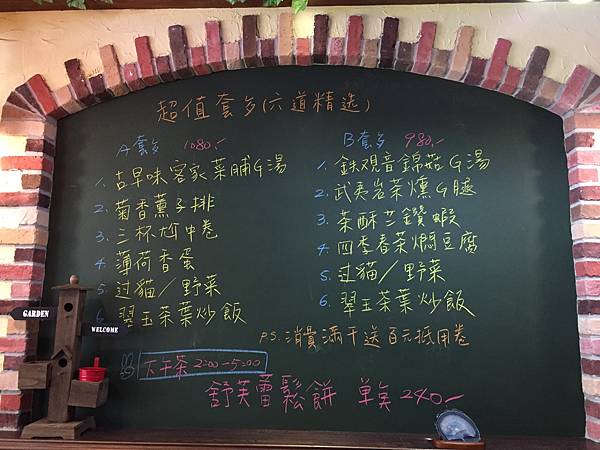 超值套多(六道精选)
A套多 1080.-
1. 古早味客家菜脯G湯
2. 菊香薰子排
3. 三杯尬中卷
4. 薄荷香蛋
5. 过貓/野菜
6. 翠玉茶葉炒飯
B套多 980.-
1. 鉄观音錦菇G湯
2. 武夷岩茶燻G腿
3. 茶酥芝鑽蝦
4. 四季春茶燜豆腐
5. 过貓/野菜
6. 翠玉茶葉炒飯
P.S. 消費滿千送百元抵用卷
下午茶 2:00-5:00
舒芙蕾鬆餅 單点 240.-
GARDEN
WELCOME